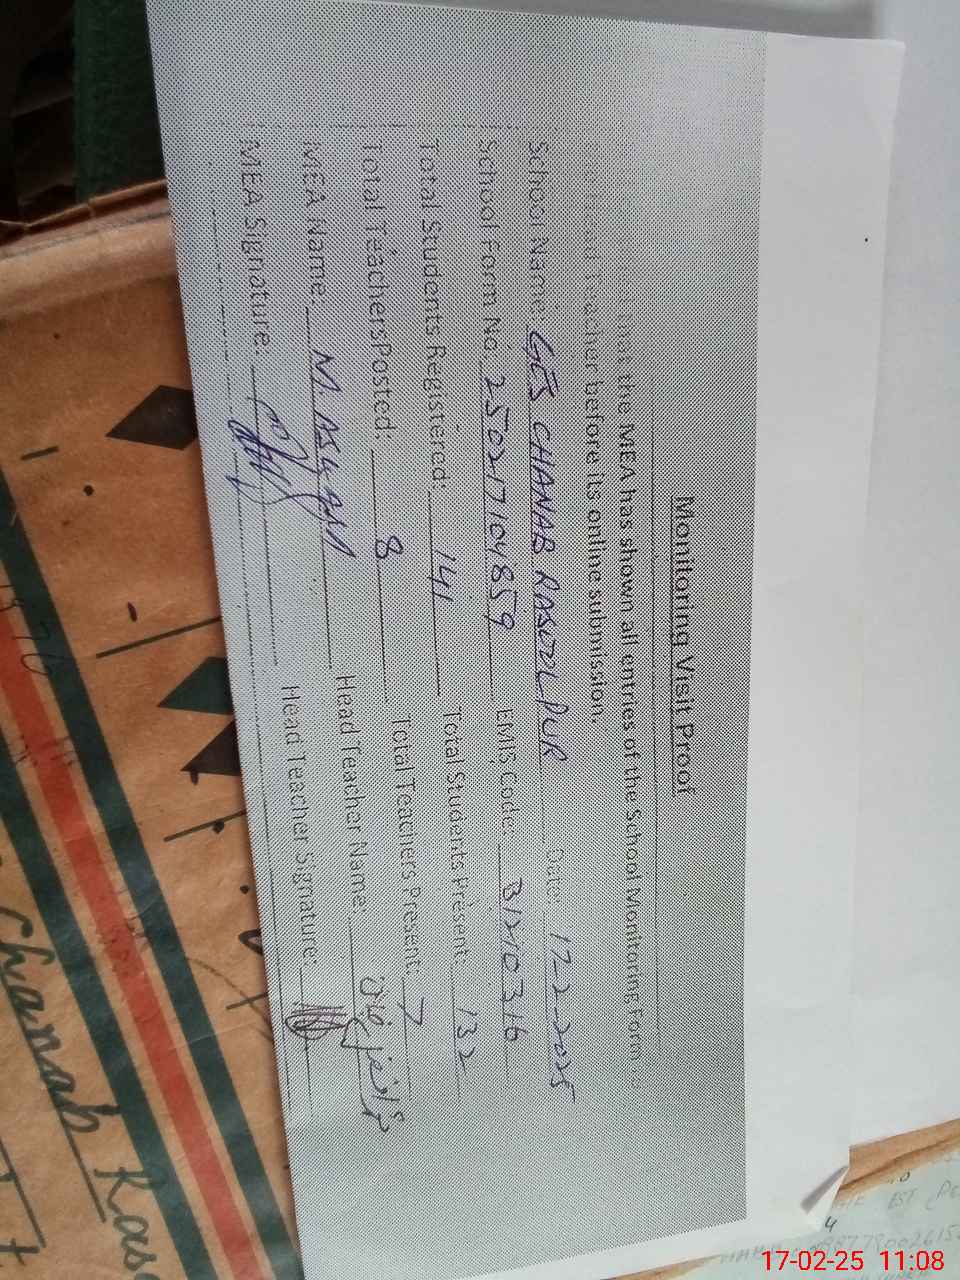 Monitoring Visit Proof
that the MEA has shown all entries of the School Monitoring Form
Teacher before its online submission.
School Name: GES CHANAB RASOOL PUR Date: 17-2-2025
School Form No: 250217104859 EMIS Code: 31210316
Total Students Registered: 141 Total Students Present: 132
Total Teachers Posted: 8 Total Teachers Present: 7
MEA Name: M. ASGHAR Head Teacher Name:
MEA Signature: Head Teacher Signature:
Chanab Rasool
17-02-25 11:08